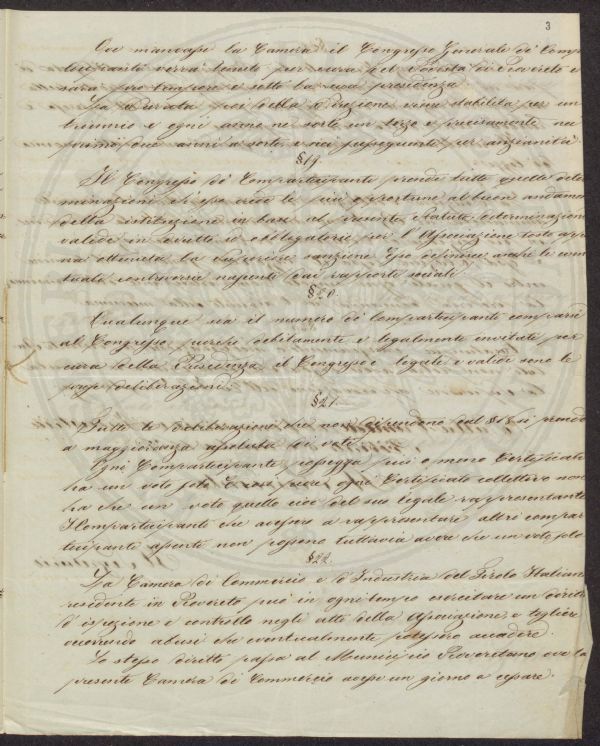 3
Ove mancasse la Camera il Congresso Generale di Compar
tecipanti verrà tenuto per cura del Podestà di Rovereto e
sarà pro tempore e sotto la sua presidenza
La durata poi della Direzione viene stabilita per un
triennio e ogni anno ne sorte un terzo e precisamente nei
primi due anni a sorte e nei susseguenti per anzianità
§19.
Il Congresso di Compartecipanti prende tutte quelle deter
minazioni ch'esso crede le più opportune al buon andamen
della istituzione in base al presente statuto determinazioni
valide in ed obbligatorie per l'Associazione tosto appe
na ottenuta la superiore sanzione. Esso definisce anche le even
tuali controversie nascenti dai rapporti sociali.
§20.
Qualunque sia il numero di Compartecipanti comparsi
al Congresso purchè debitamente e legalmente invitati per
cura della Presidenza, il Congresso è legale e valide sono le
prese deliberazioni.
§21.
Tutte le deliberazioni che non discendono dal §18 si prendo
a maggioranza assoluta di voti
Ogni Compartecipante possegga più o meno Certificati
ha un voto solo, pure ogni Certificato collettivo non
ha che un voto quello cioè del suo legale rappresentante
I Compartecipanti che avessero a rappresentare altri compar
tecipanti assenti non possono tuttavia avere che un voto solo
§22.
La Camera di Commercio e d'Industria del Tirolo Italiano
residente in Rovereto può in ogni tempo esercitare un diritto
d'ispezione e controllo negli atti della Associazione e togliere
occorrendo abusi che eventualmente potessero accadere.
Lo stesso diritto passa al Municipio Roveretano ove la
presente Camera di Commercio avesse un giorno a cessare.